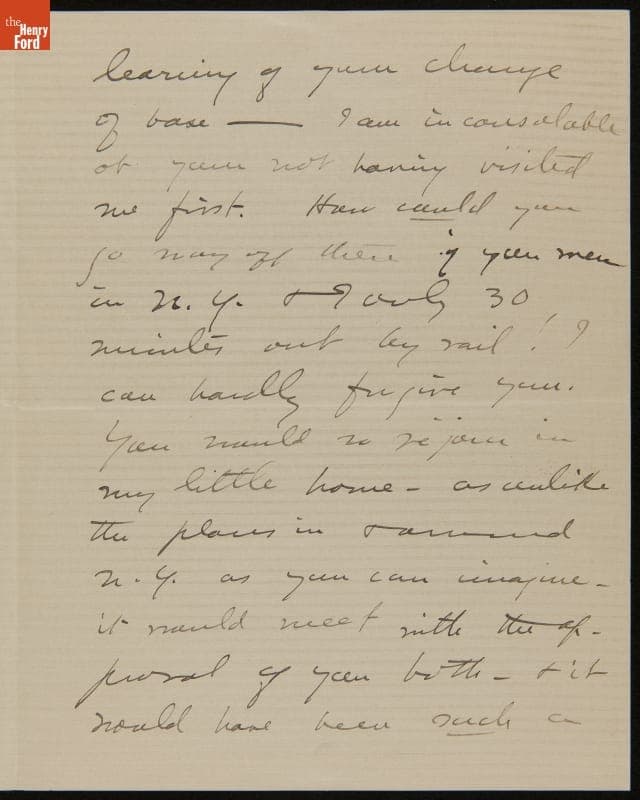 the
Henry
Ford
learning of your change
of base — I am inconsolable
at your not having visited
me first. How could you
go way off there if you were
in N. Y. & I only 30
minutes out by rail! I
can hardly forgive you.
You would so rejoice in
my little home – as unlike
the places in & around
N. Y. as you can imagine –
it would meet with the ap-
proval of you both – & it
would have been such a